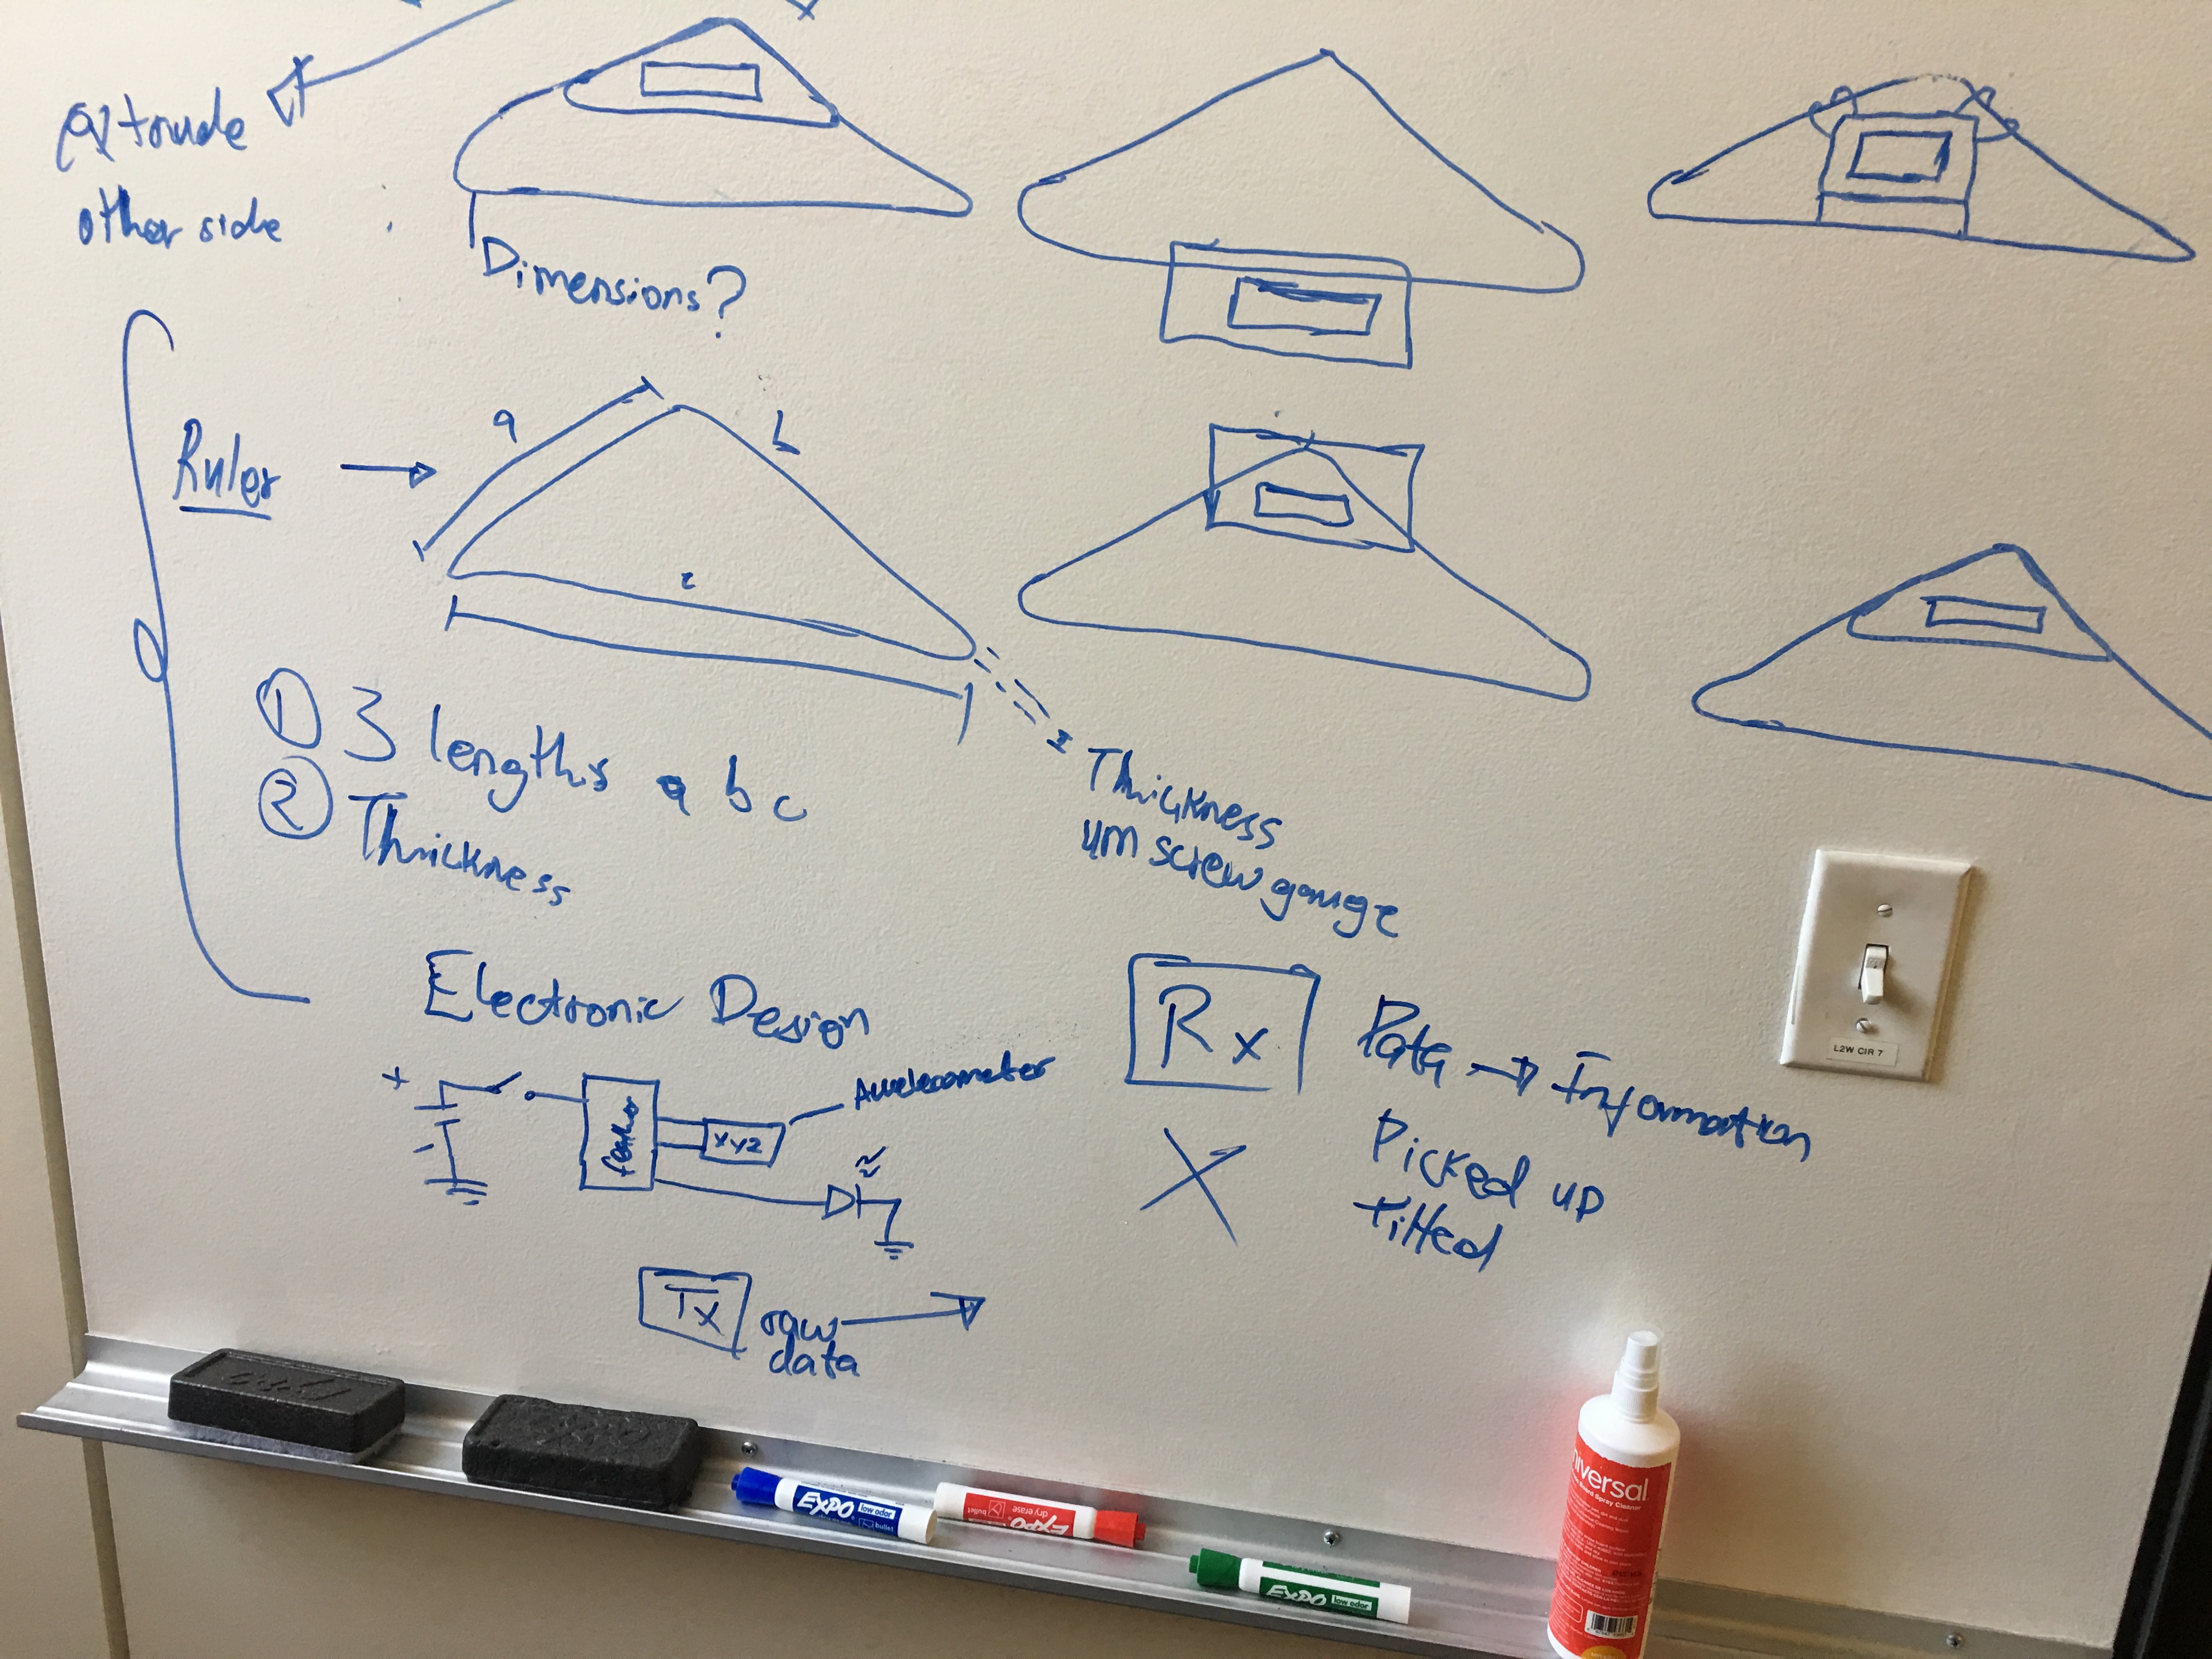 extrude
other side
Dimensions?
Ruler
a
b
c
① 3 lengths a b c
② Thickness
Thickness
um screw gauge
Electronic Design
+
-
feather
xyz
Accelerometer
Tx
raw
data
Rx
Data → Information
Picked up
tilted
L2W CIR 7
EXPO
low odor
bullet
EXPO
dry erase
bullet
EXPO
low odor
niversal
Board Spray Cleaner